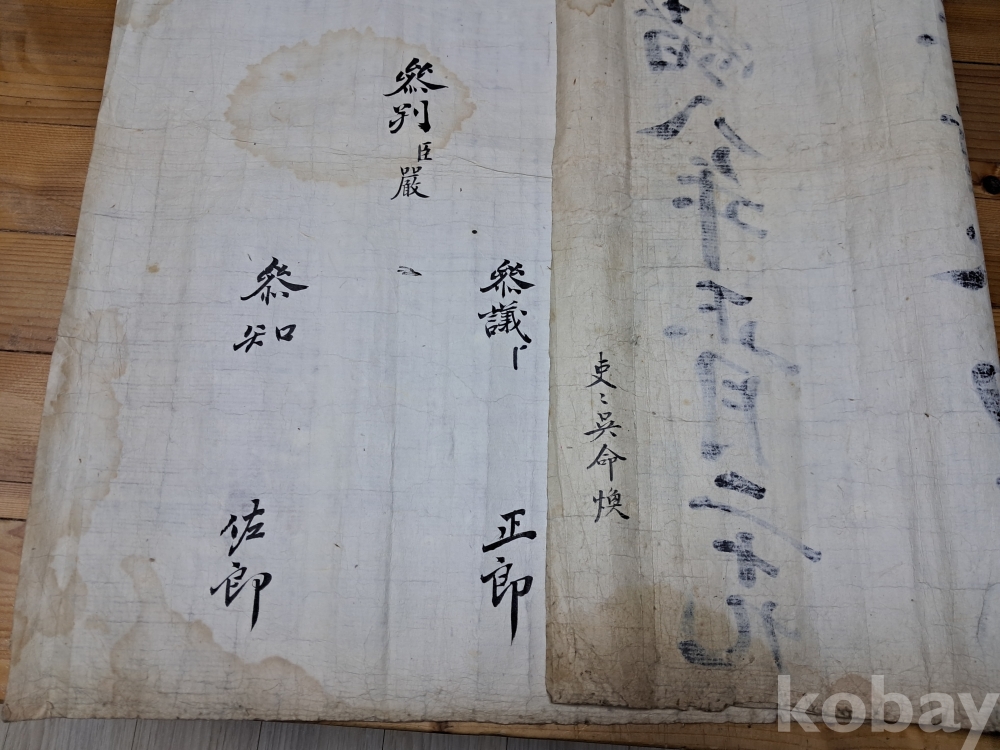 八年正月二十九
吏〻吳命煥
參議卜
正郎
參判臣嚴
參知
佐郎
kobay